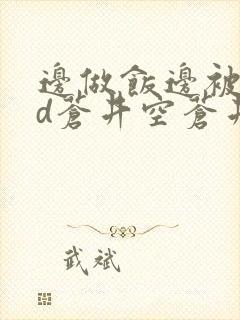 邊做飯邊被
d蒼井空蒼井
武斌